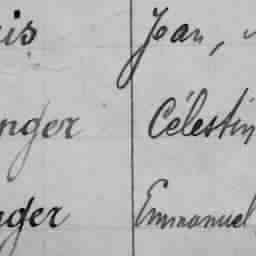 is Jean,
nger Célestin
ger Emmanuel